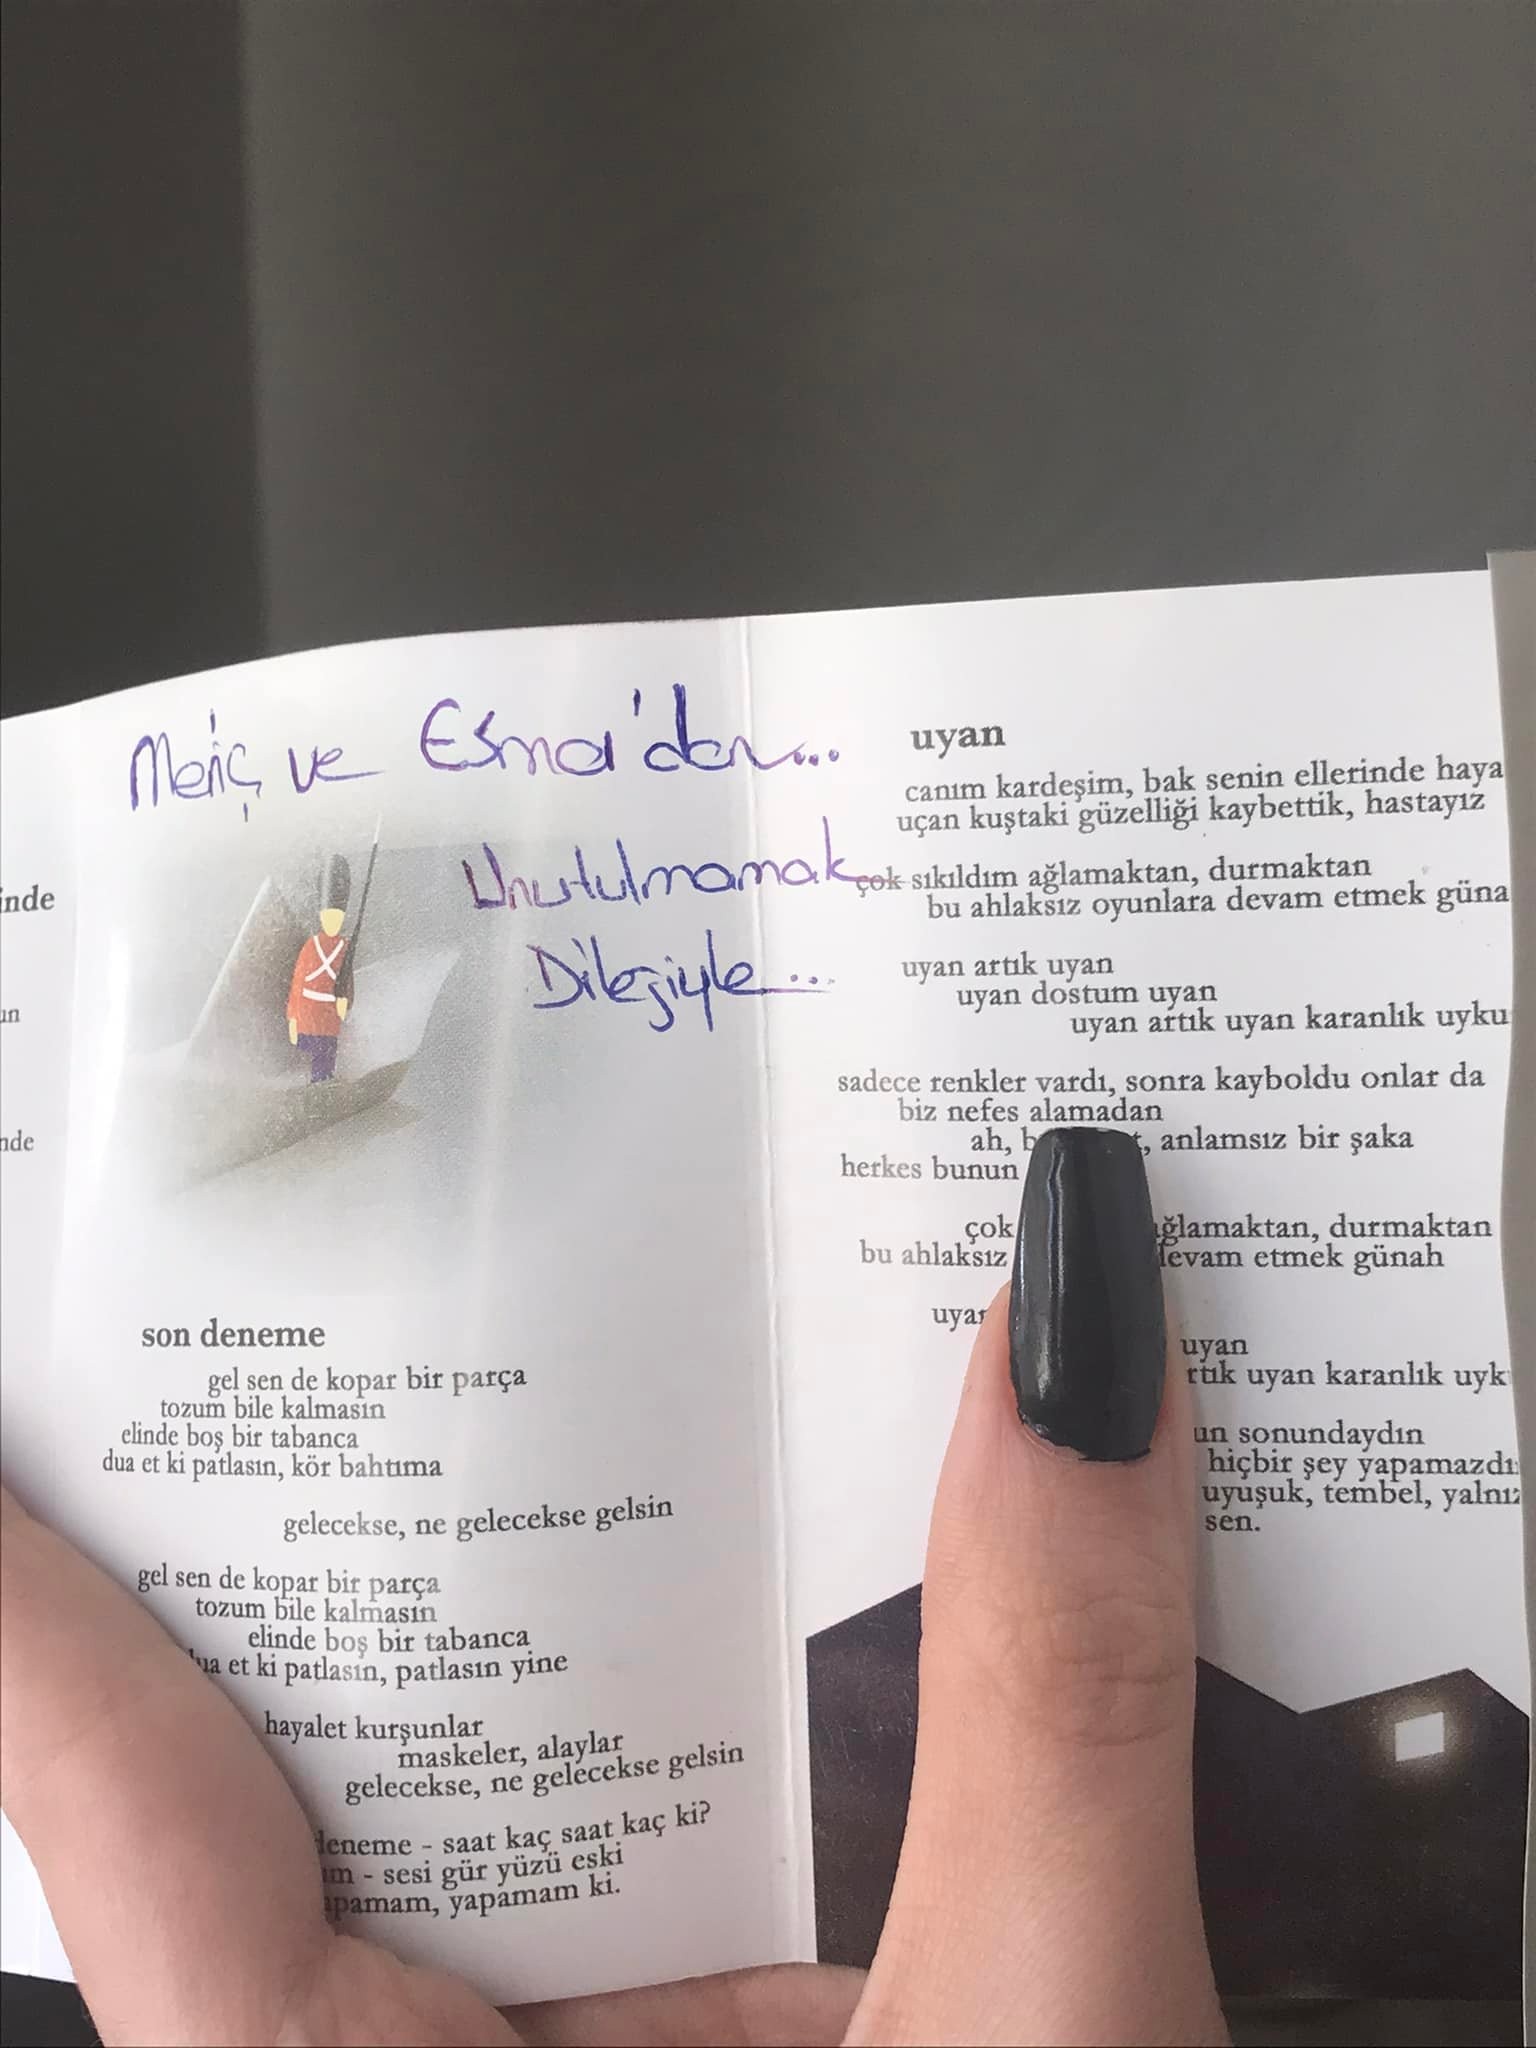 inde
un
nde
Meriç ve Esma'dan...
Unutulmamak
Dileğiyle...
son deneme
gel sen de kopar bir parça
tozum bile kalmasın
elinde boş bir tabanca
dua et ki patlasın, kör bahtıma
gelecekse, ne gelecekse gelsin
gel sen de kopar bir parça
tozum bile kalmasın
elinde boş bir tabanca
ua et ki patlasın, patlasın yine
hayalet kurşunlar
maskeler, alaylar
gelecekse, ne gelecekse gelsin
deneme - saat kaç saat kaç ki?
ım - sesi gür yüzü eski
apamam, yapamam ki.
uyan
canım kardeşim, bak senin ellerinde haya
uçan kuştaki güzelliği kaybettik, hastayız
çok sıkıldım ağlamaktan, durmaktan
bu ahlaksız oyunlara devam etmek güna
uyan artık uyan
uyan dostum uyan
uyan artık uyan karanlık uyku
sadece renkler vardı, sonra kayboldu onlar da
biz nefes alamadan
ah, b t, anlamsız bir şaka
herkes bunun
çok ağlamaktan, durmaktan
bu ahlaksız devam etmek günah
uyan
uyan
rtık uyan karanlık uyk
un sonundaydın
hiçbir şey yapamazdı
uyuşuk, tembel, yalnız
sen.